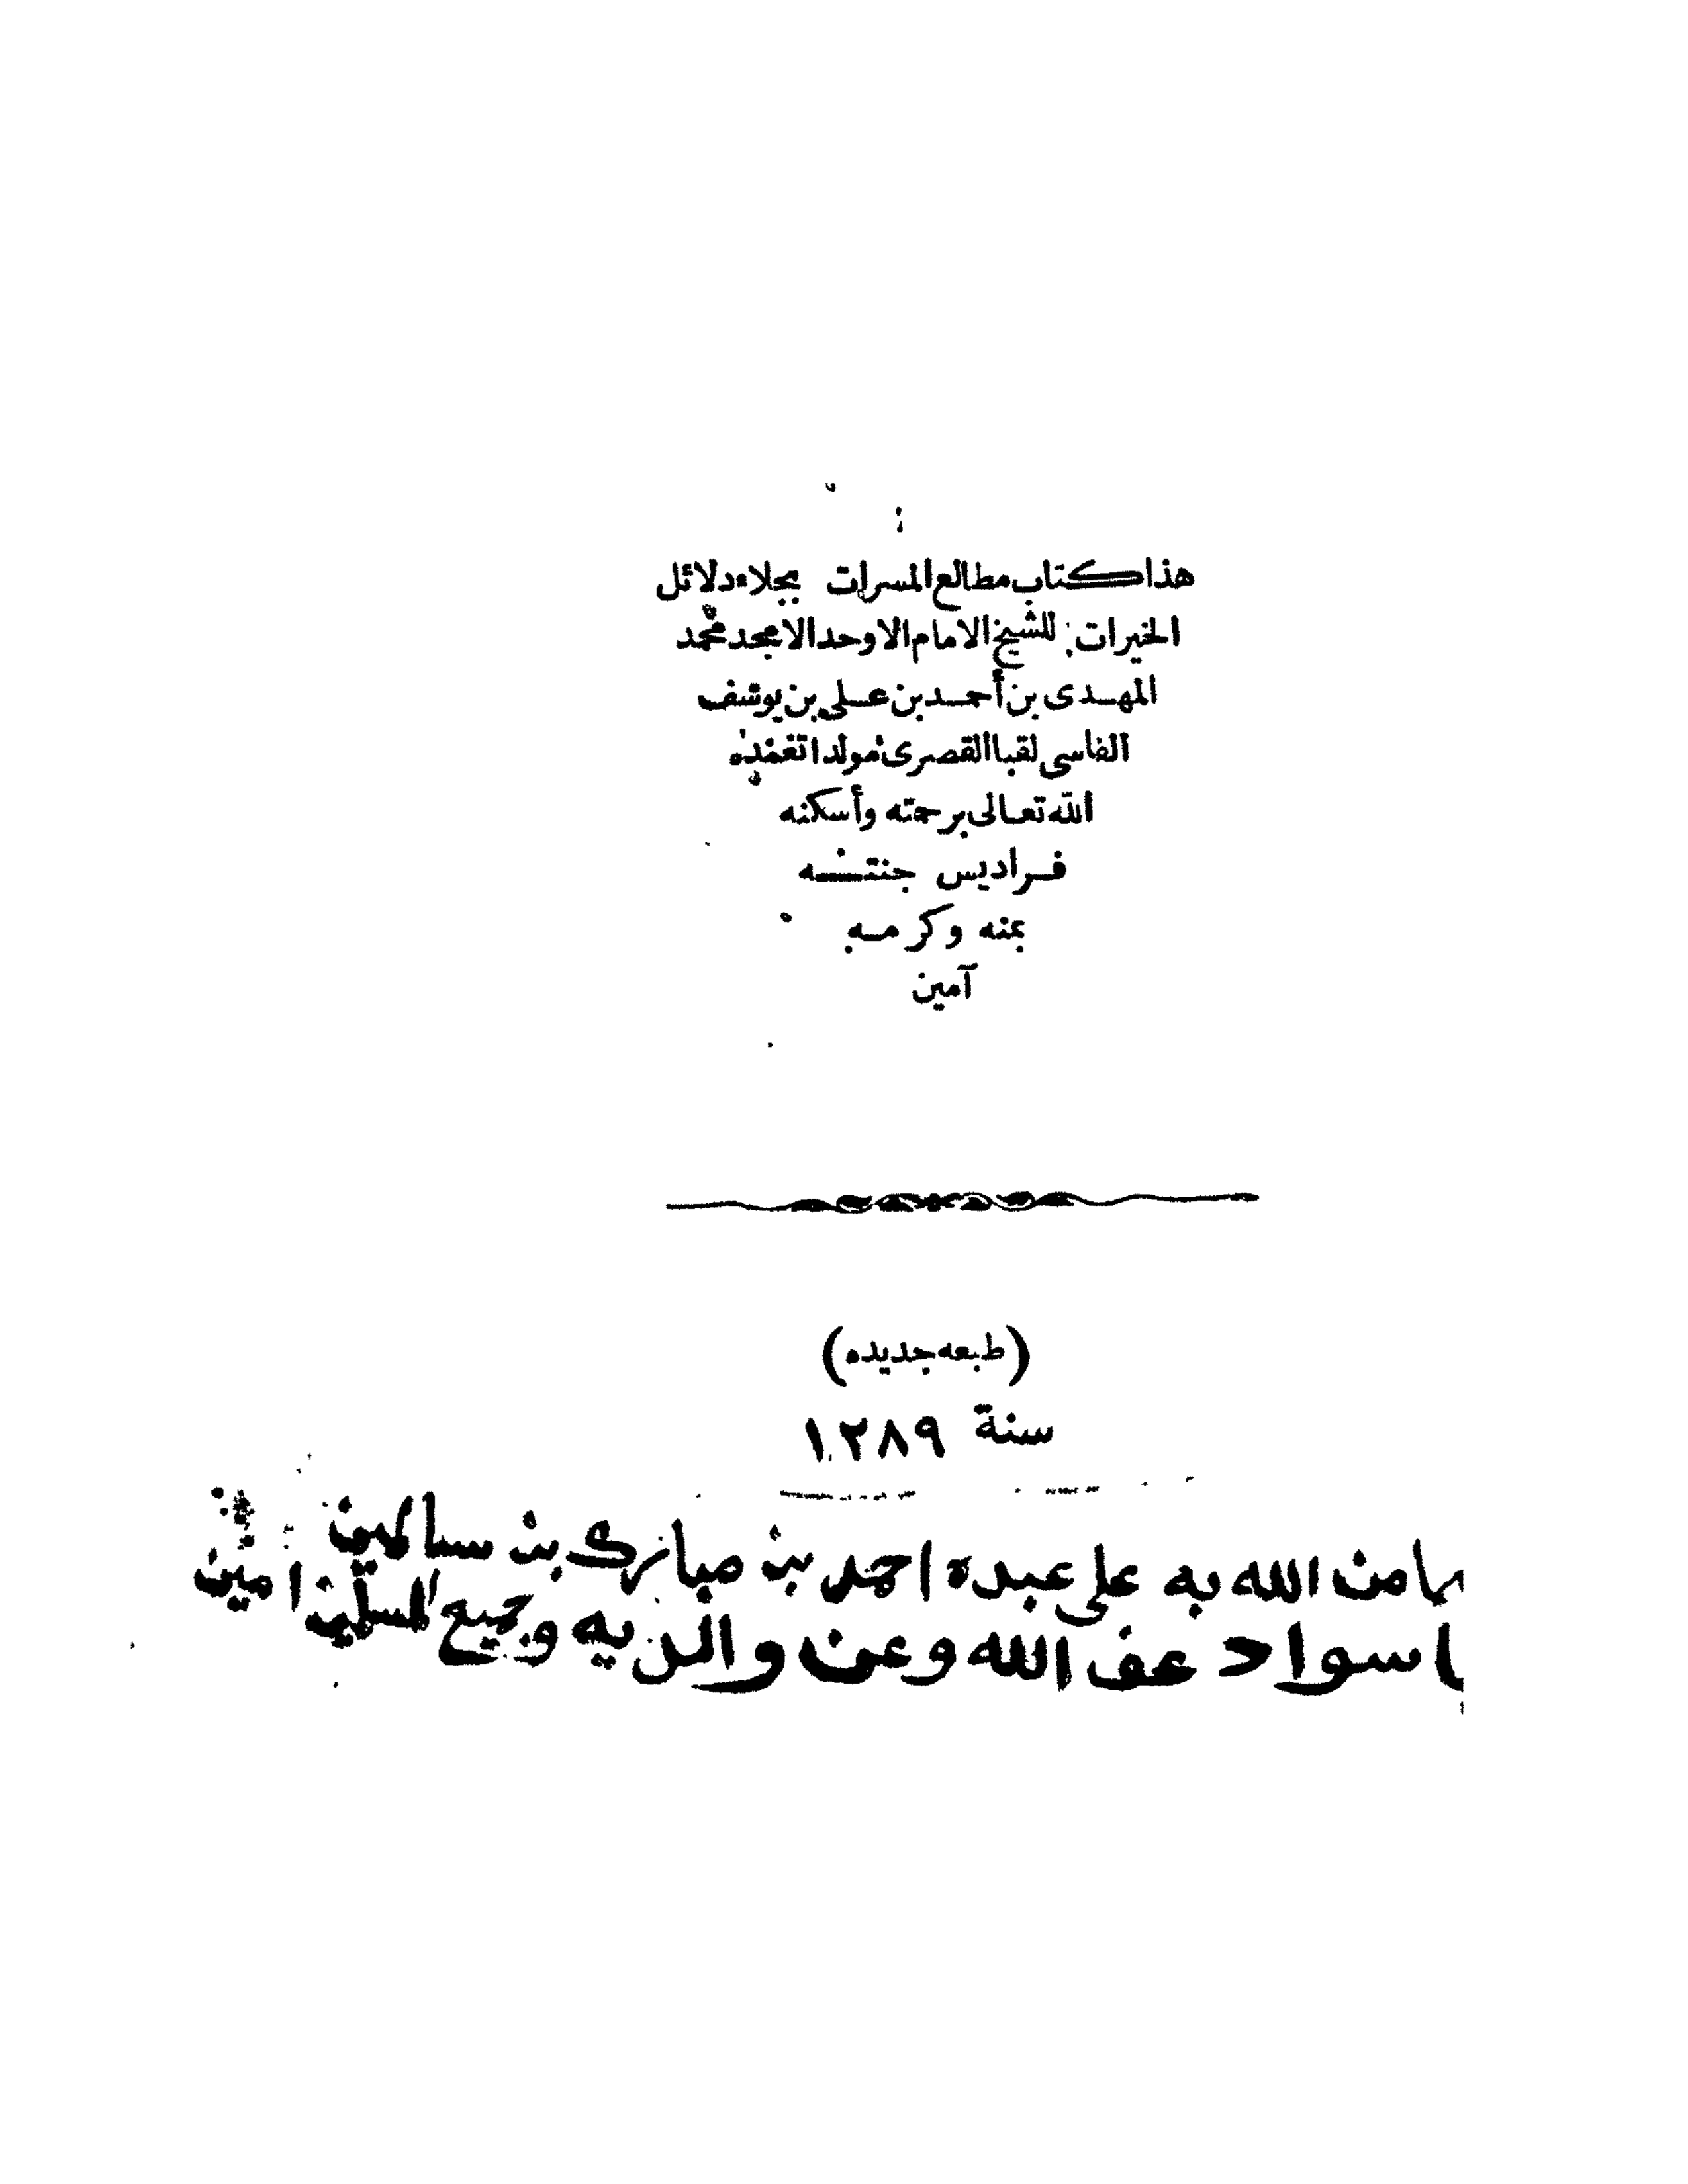 هذا كتاب مطالع المسرات بجلاء دلائل
الخيرات للشيخ الامام الاوحد الامجد محمد
المهدى بن أحمد بن على بن يوسف
الفاسى لقبا القصرى مولدا تغمده
الله تعالى برحمته وأسكنه
فراديس جنته
بمنه وكرمه
آمين
(طبعه جديده)
سنة ١٢٨٩
من الله به على عبده احمد بن مبارك بن سالمين
اسواد عف الله وعن والديه وجميع المسلمين امين